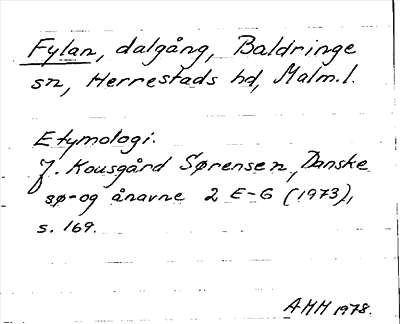 Fylan, dalgång, Baldringe
sn, Herrestads hd, Malm. l.
Etymologi:
J. Kousgård Sørensen, Danske
sø- og ånavne 2 E-G (1973),
s. 169.
AHH 1978.